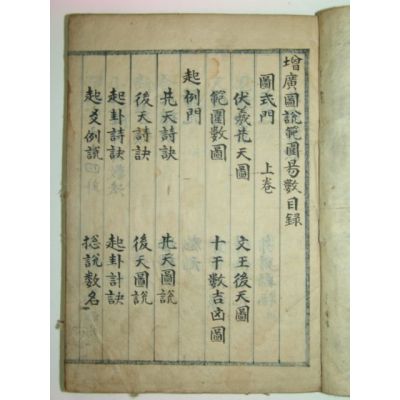 增廣圖說範圍易數目錄
圖式門 上卷
伏羲先天圖 文王後天圖
範圍數圖 十干數吉凶圖
起例門
先天詩訣 先天圖說
後天詩訣 後天圖說
起卦詩訣 起卦計訣
起爻例說 捴說数名